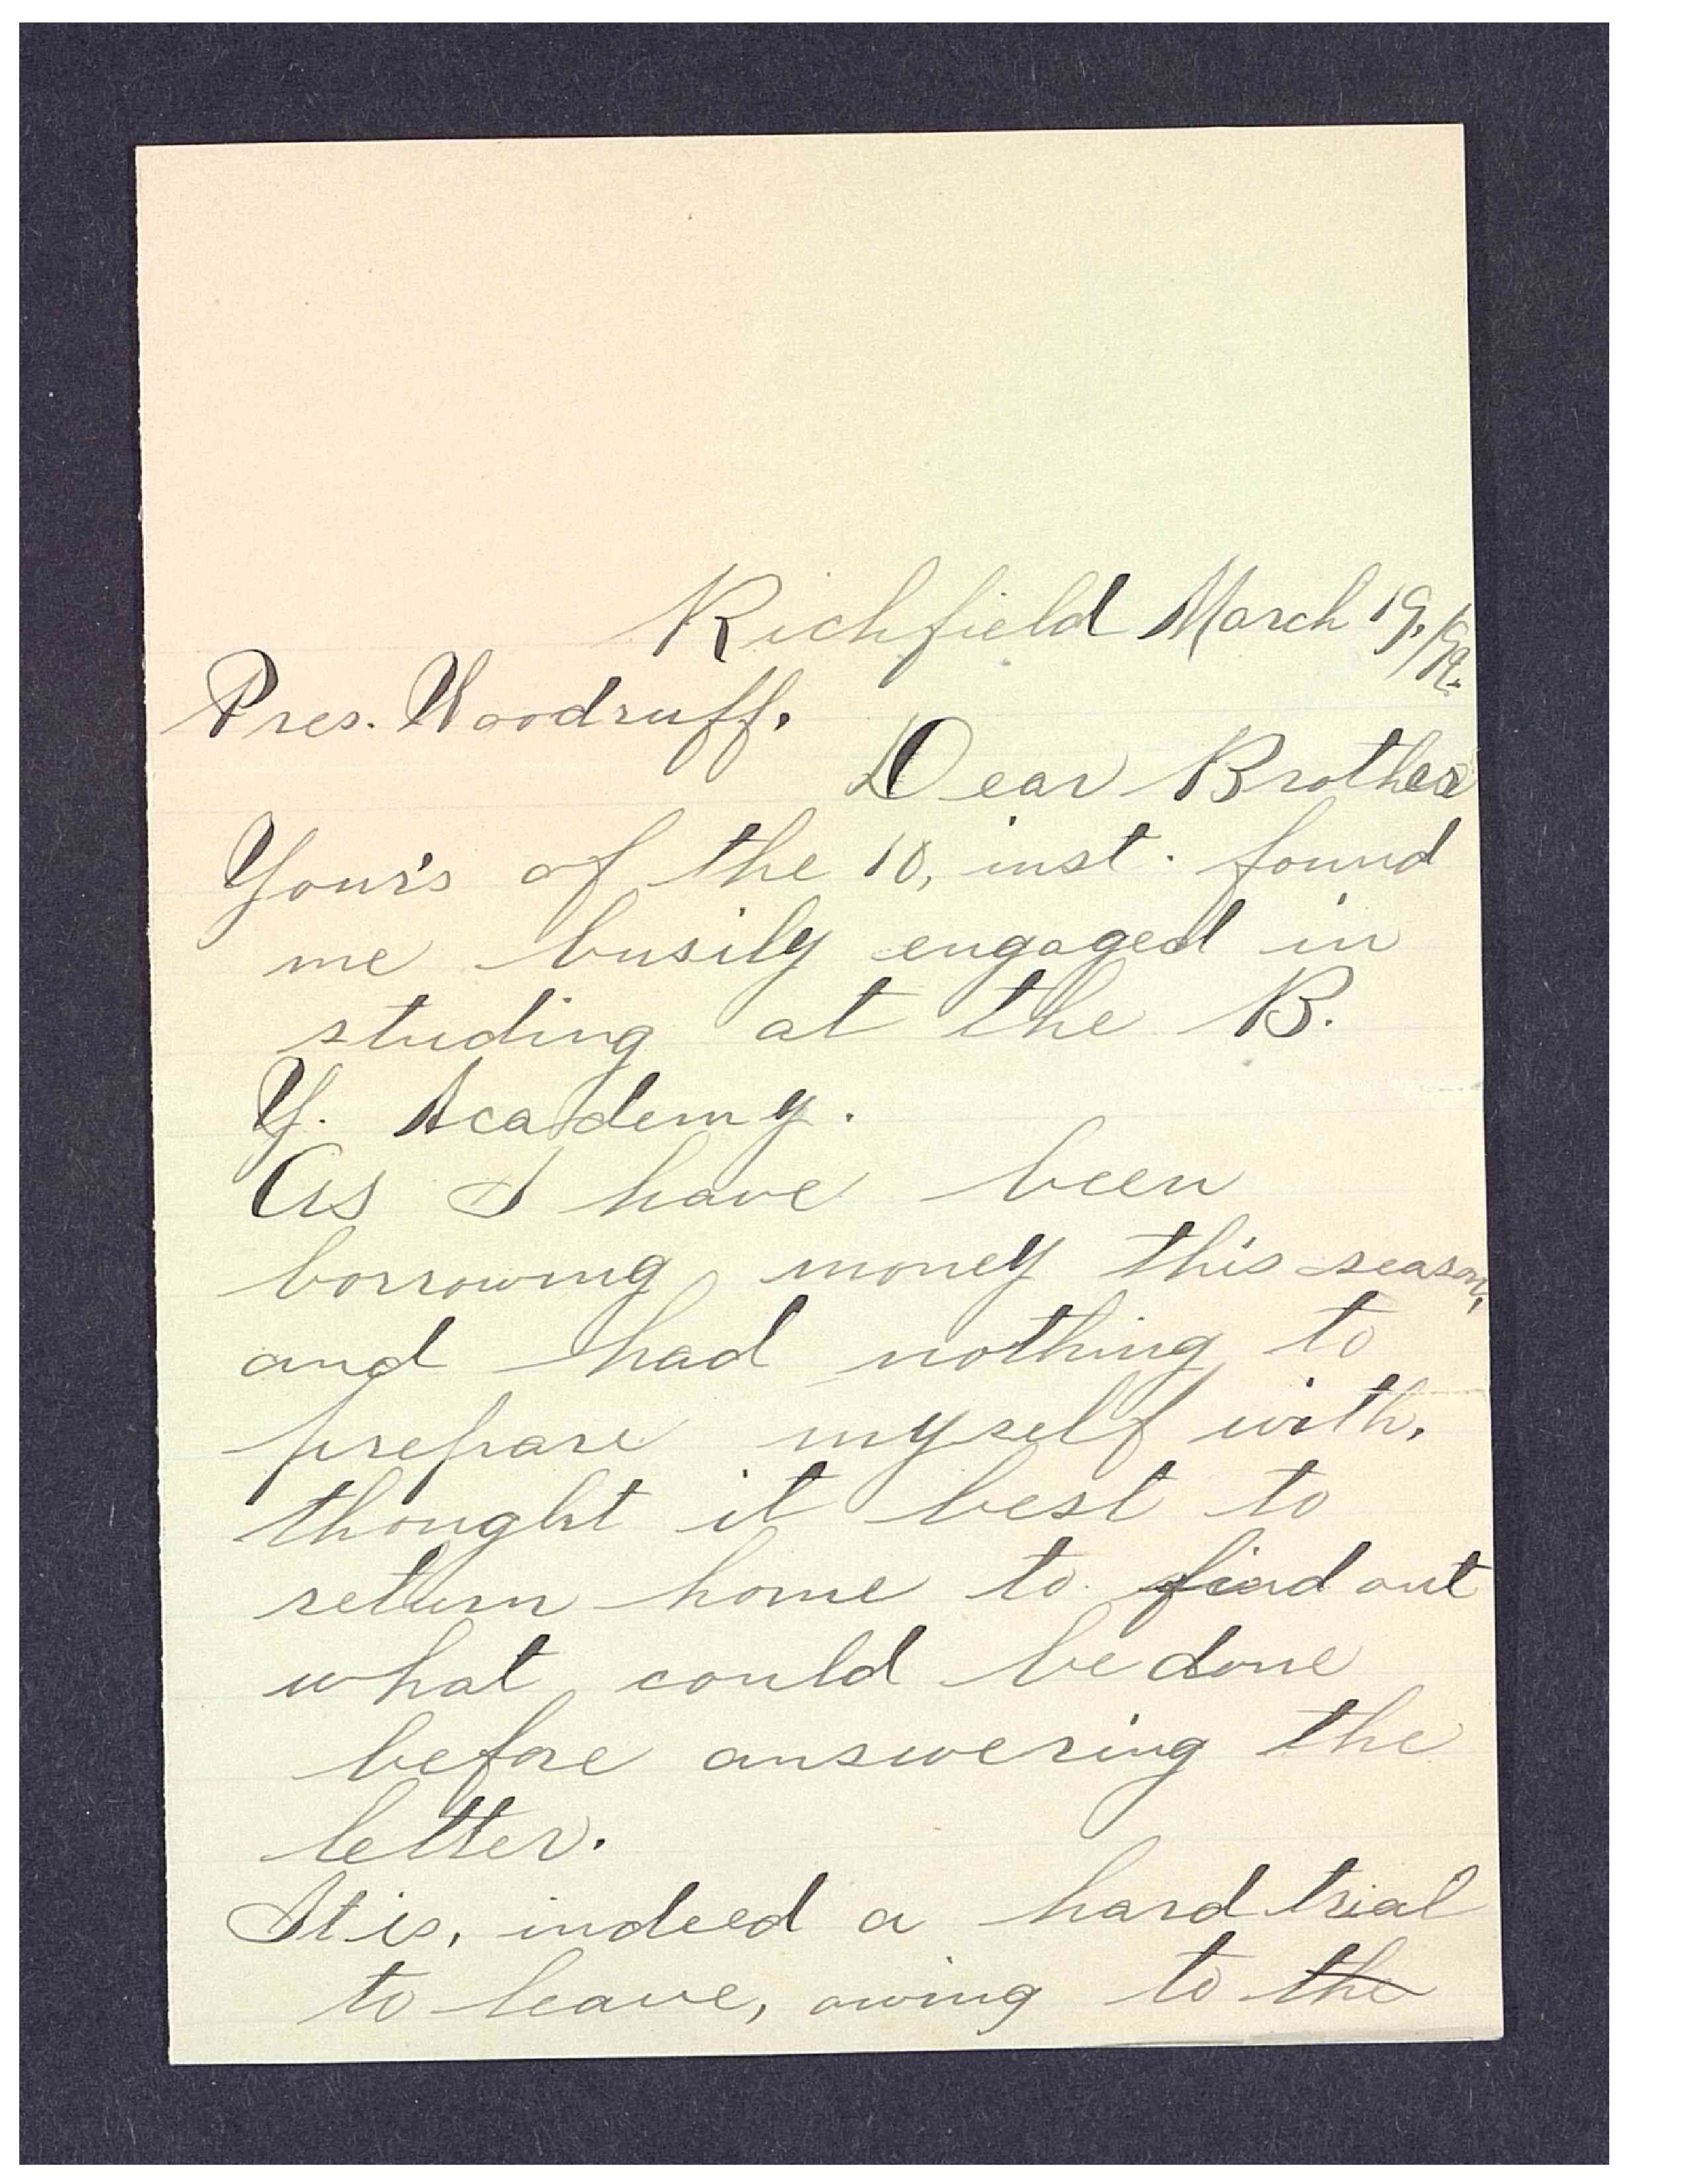 Richfield March 19,
Pres. Woodruff.
Dear Brother
Your's of the 10, inst. found
me busily engaged in
studing at the B.
Y. Academy.
As I have been
borrowing money this season,
and had nothing to
prepare myself with,
thought it best to
return home to find out
what could be done
before answering the
letter.
It is, indeed a hard trial
to leave, owing to the